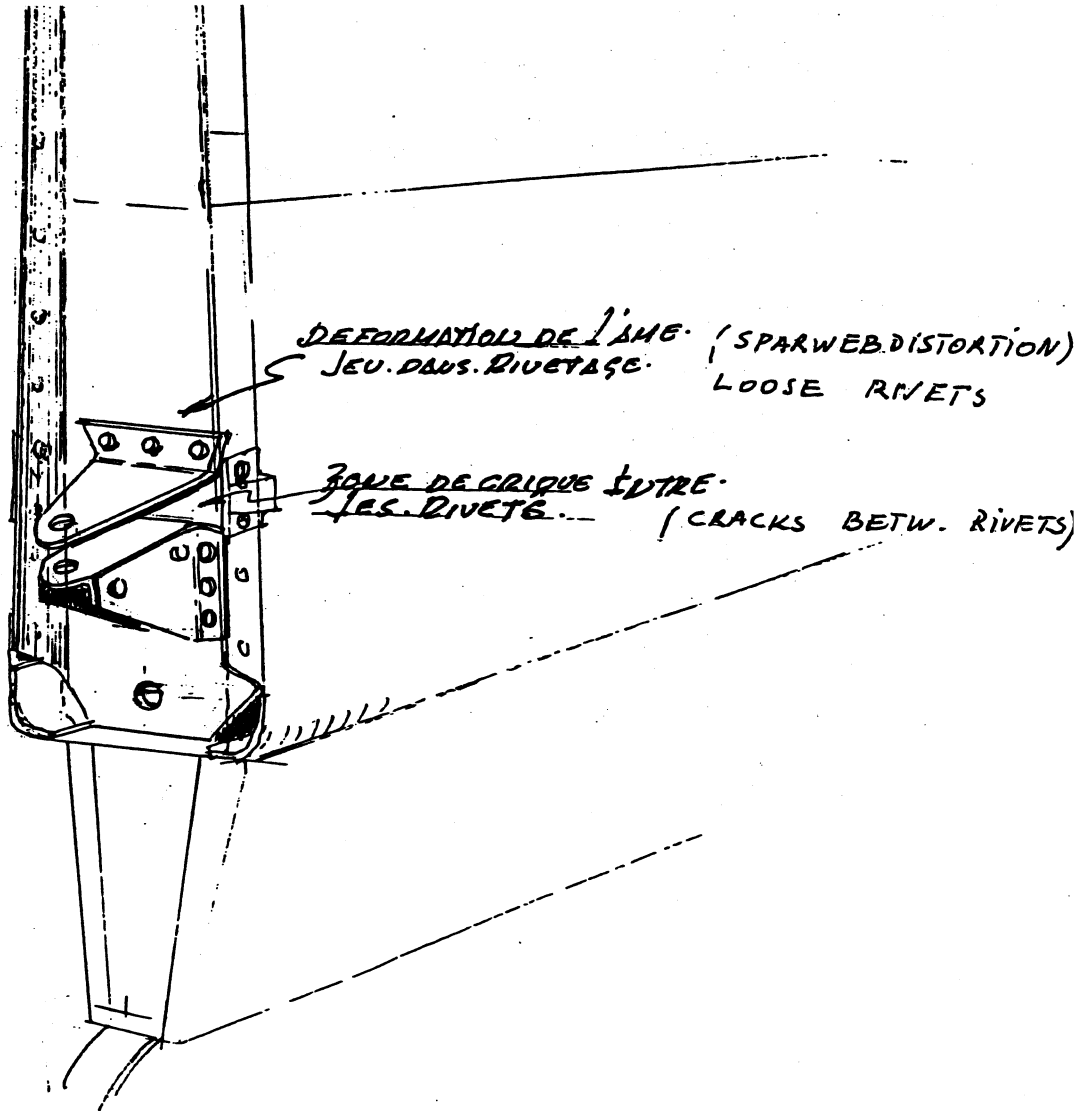 DEFORMATION DE L'AME. (SPARWEB.DISTORTION)
JEU.DANS.RIVETAGE.
LOOSE RIVETS
ZONE DE CRIQUE ENTRE.
LES.RIVETS.
(CRACKS BETW. RIVETS)